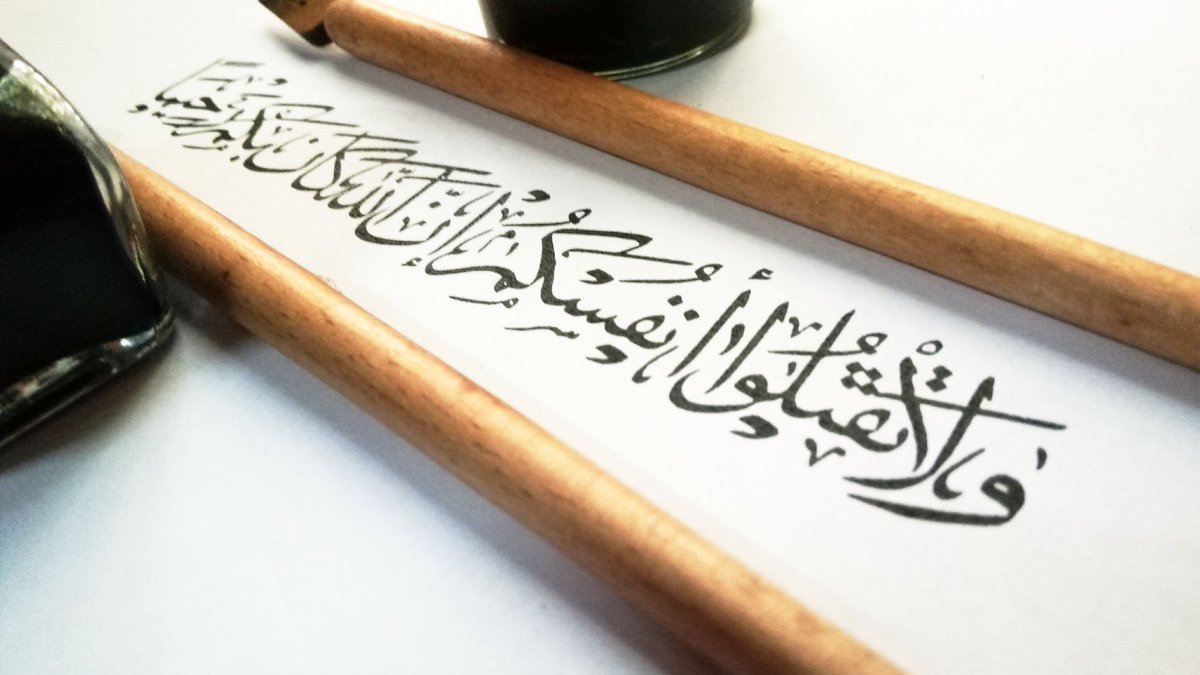 وَلَا تَقْتُلُوا أَنْفُسَكُمْ إِنَّ اللَّهَ كَانَ بِكُمْ رَحِيمًا